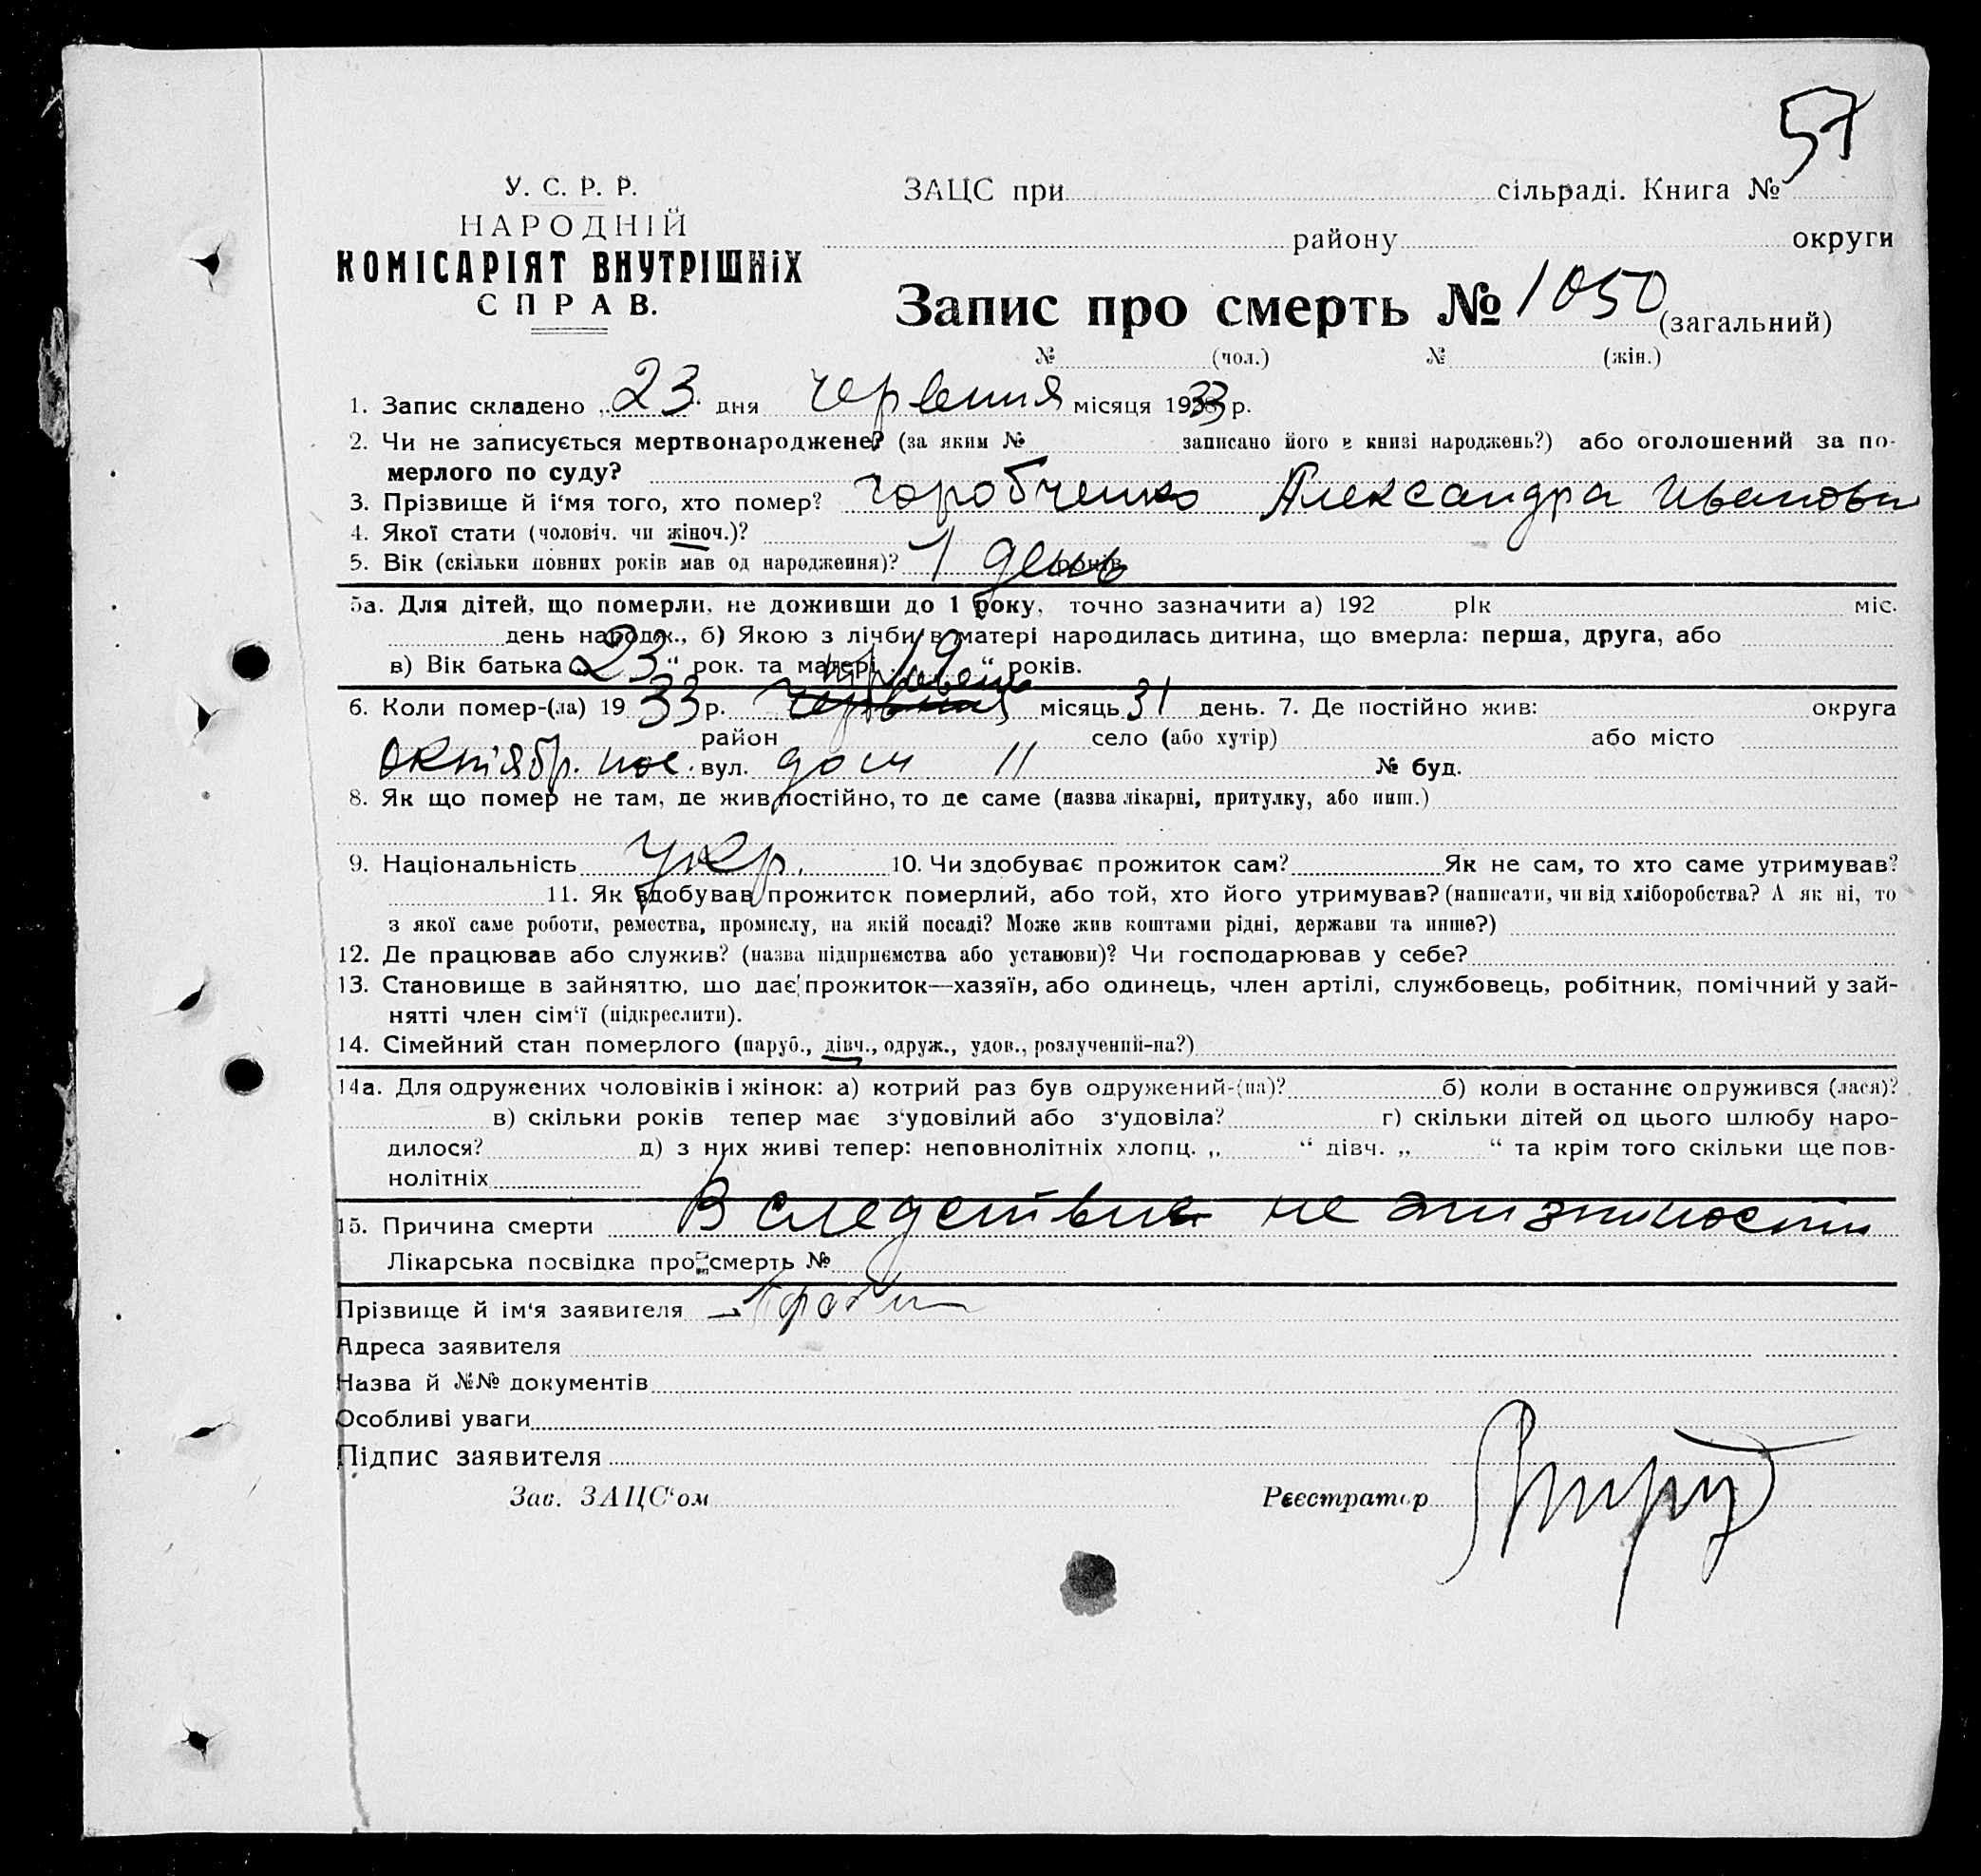 57
У. С. Р. Р.
НАРОДНІЙ
КОМІСАРІЯТ ВНУТРІШНІХ
СПРАВ.
ЗАЦС при сільраді. Книга №
району округи
Запис про смерть № 1050 (загальний)
№ (чол.) № (жін.)
1. Запис складено „23" дня червення місяця 1933 р.
2. Чи не записується мертвонароджене? (за яким № записано його в книзі народжень?) або оголошений за по-
мерлого по суду?
3. Прізвище й і'мя того, хто помер? Горобченко Александра Ивановн
4. Якої стати (чоловіч. чи жіноч.)?
5. Вік (скільки повних років мав од народження)? 1 день років
5а. Для дітей, що померли, не доживши до 1 року, точно зазначити а) 192 рік міс.
день народж., б) Якою з лічби в матері народилась дитина, що вмерла: перша, друга, або
в) Вік батька „23" рок. та матері „19" років.
6. Коли помер-(ла) 1933 р. місяць 31 день. 7. Де постійно жив: округа
район село (або хутір) або місто
Октябр. пос. вул. дом 11 № буд.
8. Як що помер не там, де жив постійно, то де саме (назва лікарні, притулку, або инш.)
9. Національність укр. 10. Чи здобуває прожиток сам? Як не сам, то хто саме утримував?
11. Як здобував прожиток померлий, або той, хто його утримував? (написати, чи від хліборобства? А як ні, то
з якої саме роботи, ремества, промислу, на якій посаді? Може жив коштами рідні, держави та инше?)
12. Де працював або служив? (назва підприємства або установи)? Чи господарював у себе?
13. Становище в зайняттю, що дає прожиток—хазяїн, або одинець, член артілі, службовець, робітник, помічний у зай-
нятті член сім'ї (підкреслити).
14. Сімейний стан померлого (паруб., дівч., одруж., удов., розлучений-на?)
14а. Для одружених чоловіків і жінок: а) котрий раз був одружений-(на)? б) коли в останнє одружився (лася)?
в) скільки років тепер має з'удовілий або з'удовіла? г) скільки дітей од цього шлюбу наро-
дилося? д) з них живі тепер: неповнолітніх хлопц. „ " дівч. „ " та крім того скільки ще пов-
нолітніх
15. Причина смерти Вследствие не жизнности
Лікарська посвідка про смерть №
Прізвище й ім'я заявителя
Адреса заявителя
Назва й №№ документів
Особливі уваги
Підпис заявителя
Зав. ЗАЦС'ом Реєстратор